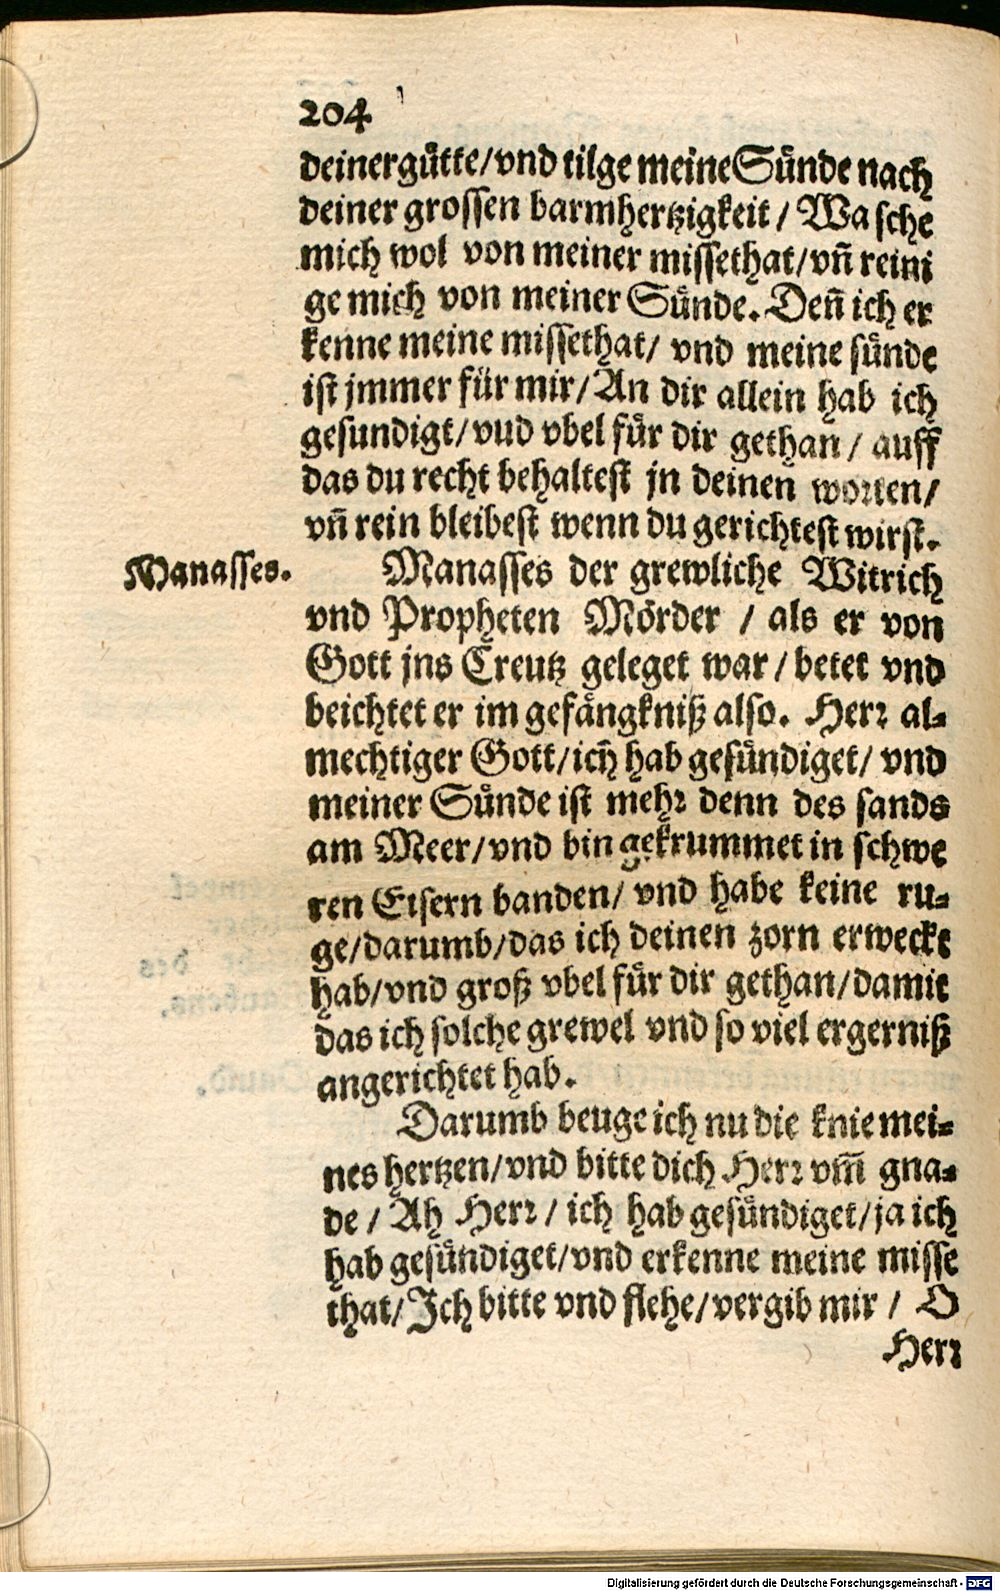 204
deinergütte/vnd tilge meine Sünde nach
deiner grossen barmhertzigkeit / Wasche
mich wol von meiner missethat/vn̄ reini
ge mich von meiner Sünde. Den̄ ich er
kenne meine missethat/ vnd meine sünde
ist jmmer für mir/An dir allein hab ich
gesundigt/vud vbel für dir gethan / auff
das du recht behaltest jn deinen worten/
vn̄ rein bleibest wenn du gerichtest wirst.
Manasses.
Manasses der grewliche Witrich
vnd Propheten Mörder / als er von
Gott jns Creutz geleget war / betet vnd
beichtet er im gefängkniß also. Herr al-
mechtiger Gott/ich hab gesündiget/ vnd
meiner Sünde ist mehr denn des sands
am Meer/vnd bin gekrummet in schwe
ren Eisern banden/ vnd habe keine ru-
ge/darumb/das ich deinen zorn erweckt
hab/vnd groß vbel für dir gethan/damit
das ich solche grewel vnd so viel ergerniß
angerichtet hab.
Darumb beuge ich nu die knie mei-
nes hertzen/vnd bitte dich Herr vm̄ gna-
de / Ah Herr / ich hab gesündiget/ja ich
hab gesündiget/vnd erkenne meine misse
that/Ich bitte vnd flehe/vergib mir / O
Herr
Digitalisierung gefördert durch die Deutsche Forschungsgemeinschaft - DFG